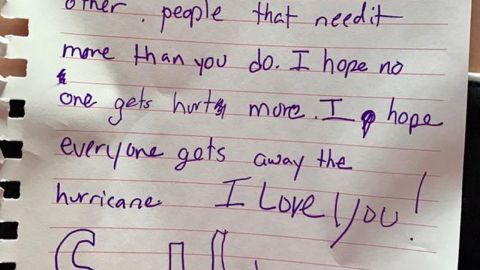 other. people that need it
more than you do. I hope no
one gets hurt more. I hope
everyone gets away the
hurricane I Love you!